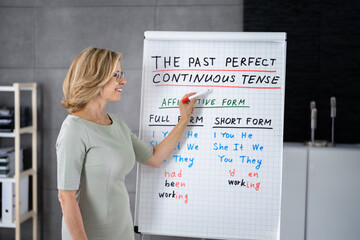 THE PAST PERFECT
CONTINUOUS TENSE
AFFIRMATIVE FORM
FULL FORM SHORT FORM
I You He I You He
She It We She It We
You They You They
had 'd en
been working
working